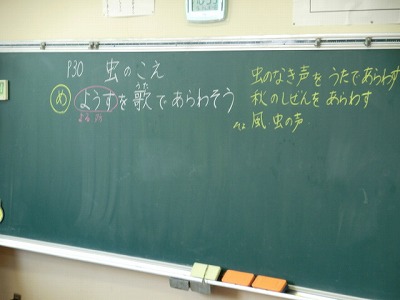 P30 虫のこえ
め ようすを歌であらわそう
うた
虫のなき声をうたであらわす
秋のしぜんをあらわす
風・虫の声